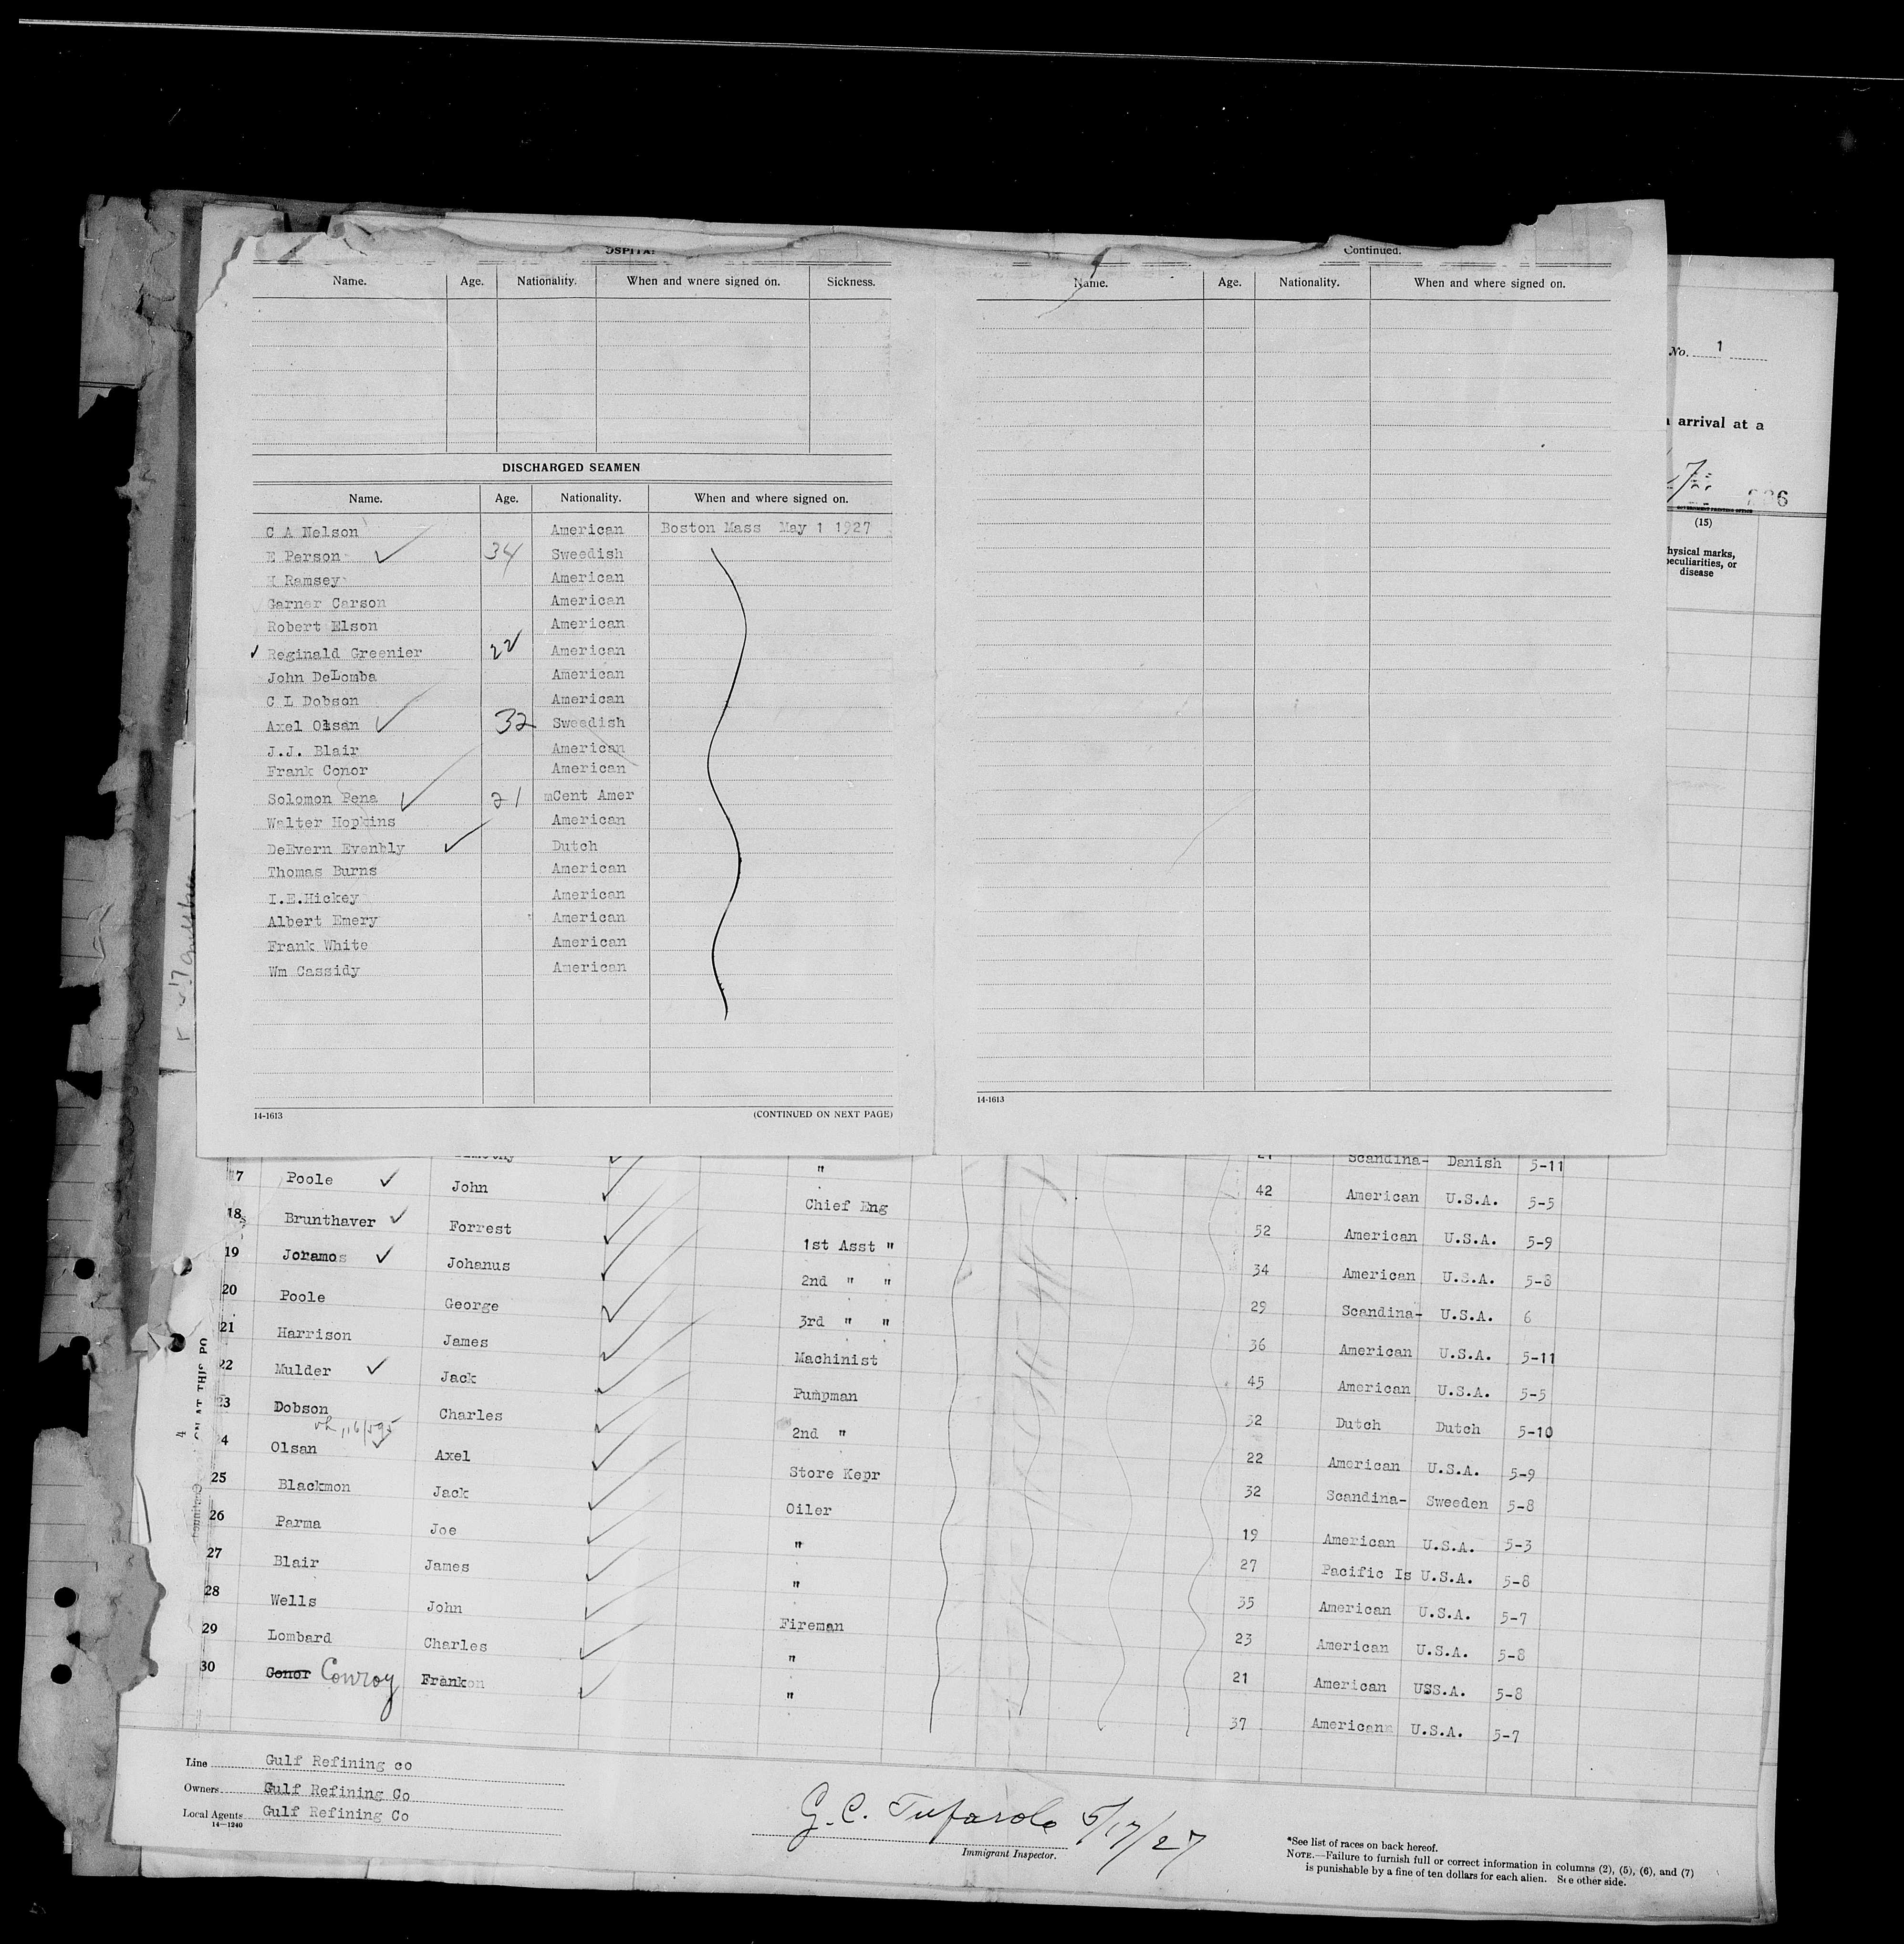 OSPITA
Name. Age. Nationality. When and where signed on. Sickness.
DISCHARGED SEAMEN
Name. Age. Nationality. When and where signed on.
C A Nelson American Boston Mass May 1 1927
E Person 34 Sweedish
Ramsey American
Garner Carson American
Robert Elson American
Reginald Greenier 22 American
John DeLomba American
C L Dobson American
Axel Olsan 32 Sweedish
J.J. Blair American
Frank Conor American
Solomon Pena 21 mCent Amer
Walter Hopkins American
DeEvern Evenbly Dutch
Thomas Burns American
I.E.Hickey American
Albert Emery American
Frank White American
Wm Cassidy American
14-1613 (CONTINUED ON NEXT PAGE)
Continued.
Name. Age. Nationality. When and where signed on.
14-1613
No. 1
arrival at a
(15)
hysical marks,
peculiarities, or
disease
" Scandina- Danish 5-11
17 Poole John Chief Eng 42 American U.S.A. 5-5
18 Brunthaver Forrest 1st Asst " 52 American U.S.A. 5-9
19 Joramos Johanus 2nd " " 34 American U.S.A. 5-8
20 Poole George 3rd " " 29 Scandina- U.S.A. 6
21 Harrison James Machinist 36 American U.S.A. 5-11
22 Mulder Jack Pumpman 45 American U.S.A. 5-5
23 Dobson Charles 2nd " 32 Dutch Dutch 5-10
4 Olsan Axel Store Kepr 22 American U.S.A. 5-9
25 Blackmon Jack Oiler 32 Scandina- Sweeden 5-8
26 Parma Joe " 19 American U.S.A. 5-3
27 Blair James " 27 Pacific Is U.S.A. 5-8
28 Wells John Fireman 35 American U.S.A. 5-7
29 Lombard Charles " 23 American U.S.A. 5-8
30 Conor Conroy Frank " 21 American USS.A. 5-8
37 American U.S.A. 5-7
Line Gulf Refining co
Owners Gulf Refining Co
Local Agents Gulf Refining Co
14-1240
G. C. Tufarolo 5/17/27
Immigrant Inspector.
*See list of races on back hereof.
NOTE.—Failure to furnish full or correct information in columns (2), (5), (6), and (7)
is punishable by a fine of ten dollars for each alien. See other side.